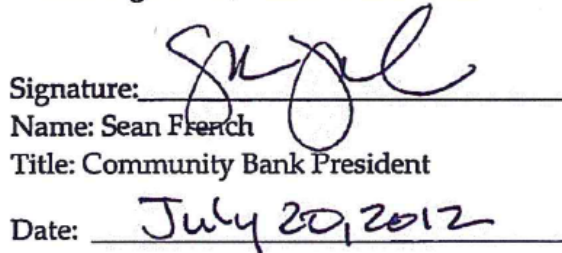 Signature:
Name: Sean French
Title: Community Bank President
Date: July 20, 2012